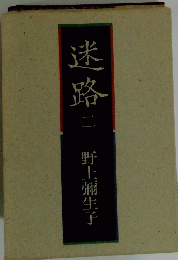 迷路
二
野上彌生子